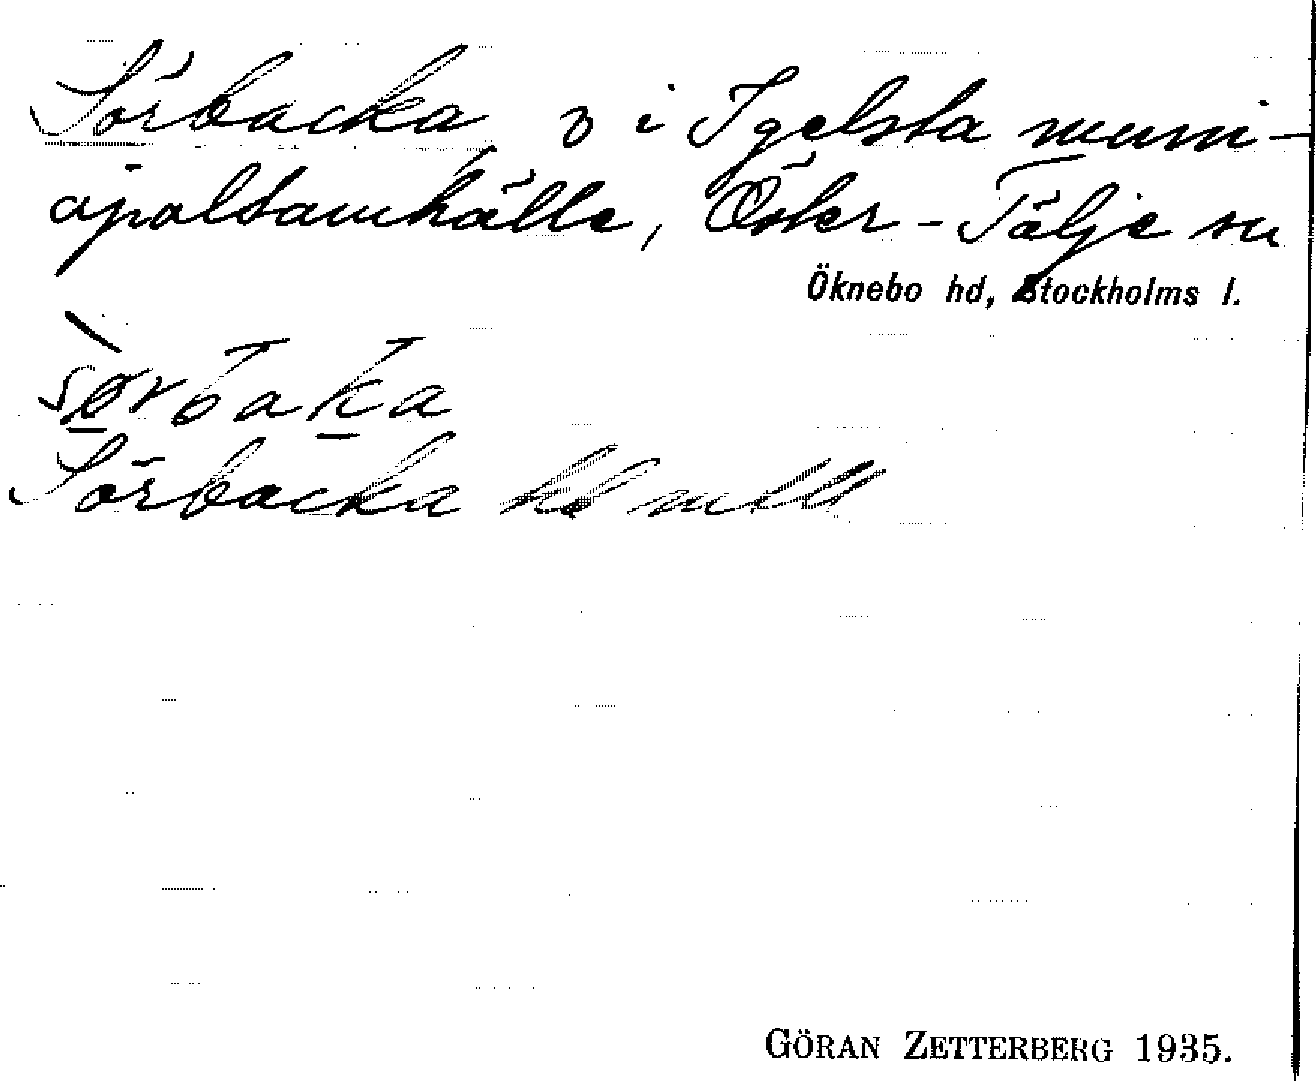 Sörbacka, v i Igelsta muni-
cipalsamhälle, Öster-Tälje sn
Öknebo hd, Stockholms l.
Sörbacka
GÖRAN ZETTERBERG 1935.